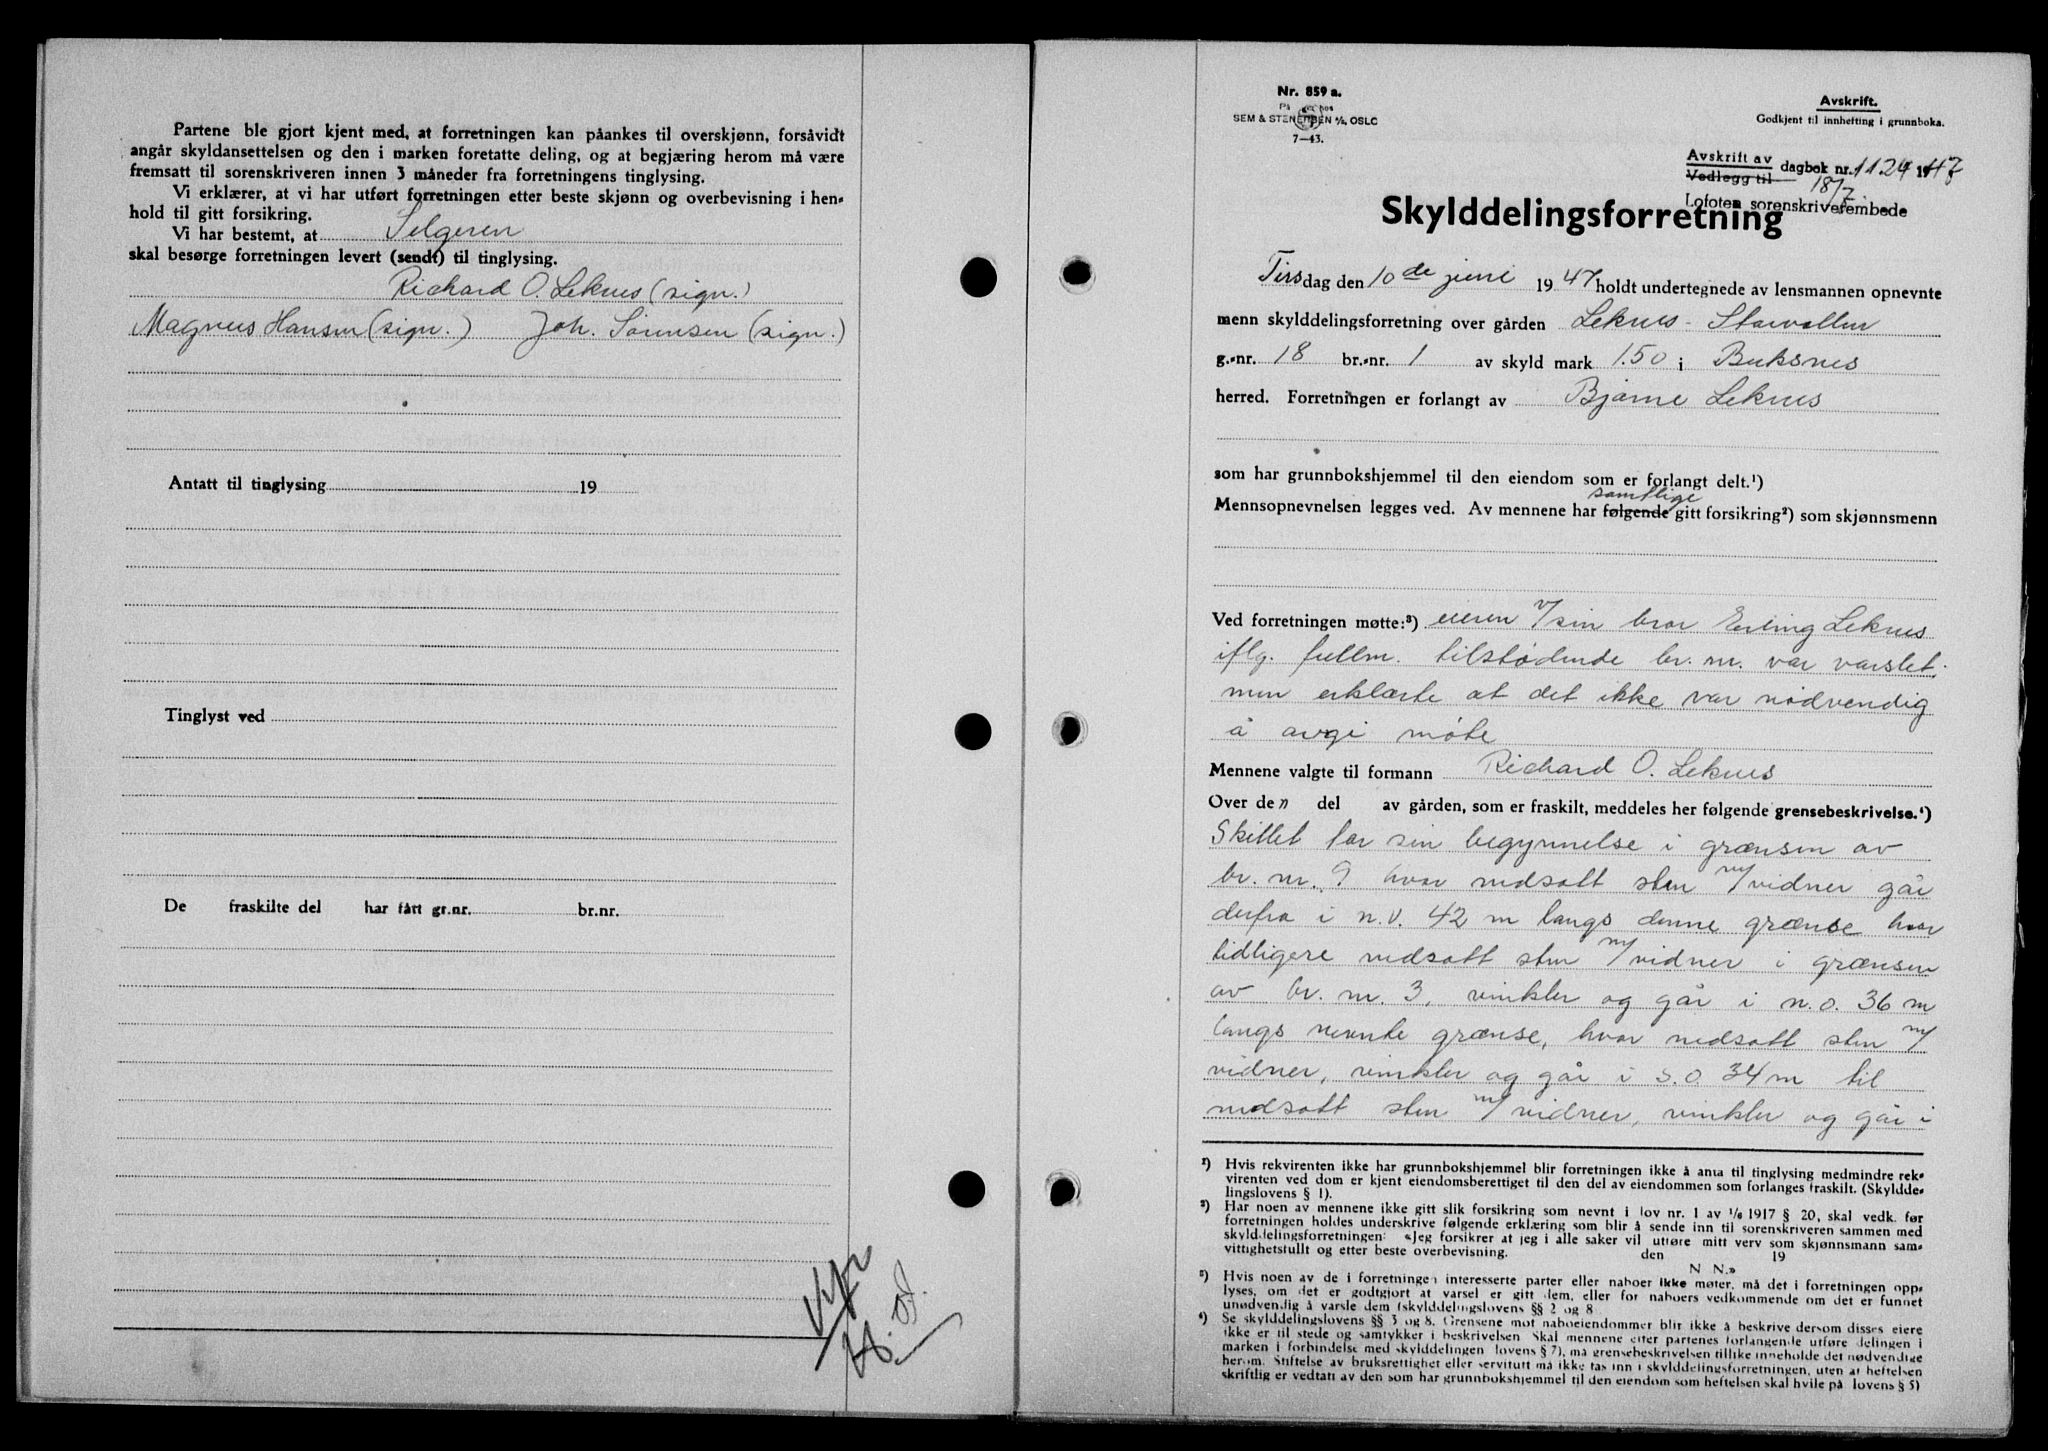 Partene ble gjort kjent med, at forretningen kan påankes til overskjønn, forsåvidt
angår skyldansettelsen og den i marken foretatte deling, og at begjæring herom må være
fremsatt til sorenskriveren innen 3 måneder fra forretningens tinglysing.
Vi erklærer, at vi har utført forretningen etter beste skjønn og overbevisning i hen-
hold til gitt forsikring.
Vi har bestemt, at Selgeren
skal besørge forretningen levert (sendt) til tinglysing.
Richard O. Leknes (sign.)
Magnus Hansen (sign.) Joh. Sørensen (sign.)
Antatt til tinglysing 19
Tinglyst ved
De fraskilte del har fått gr.nr. br.nr.
Nr. 859 a.
SEM & STENERSEN A/S, OSLO
7-43.
Avskrift.
Godkjent til innhefting i grunnboka.
Avskrift av
Vedlegg til dagbok nr. 1124 1947
18/7
Lofoten sorenskriverembede
Skylddelingsforretning
Tirsdag den 10de juni 1947 holdt undertegnede av lensmannen opnevnte
menn skylddelingsforretning over gården Leknes - Storvollen
g.-nr. 18 br.-nr. 1 av skyld mark 1.50 i Buksnes
herred. Forretningen er forlangt av Bjarne Leknes
som har grunnbokshjemmel til den eiendom som er forlangt delt.¹)
samtlige
Mennsopnevnelsen legges ved. Av mennene har følgende gitt forsikring²) som skjønnsmenn
Ved forretningen møtte:³) eieren v/sin bror Erling Leknes
iflg. fullm. tilstødende br. nr. var varslet
men erklærte at det ikke var nødvendig
å avgi møte
Mennene valgte til formann Richard O. Leknes
Over den del av gården, som er fraskilt, meddeles her følgende grensebeskrivelse.⁴)
Skillet tar sin begynnelse i grænsen av
br. nr. 9 hvor nedsatt sten m/vidner går
derfra i n.v. 42 m langs denne grænse hvor
tidligere nedsatt sten m/vidner i grænsen
av br. nr. 3, vinkler og går i n.o. 36 m
langs nevnte grænse, hvor nedsatt sten m/
vidner, vinkler og går i s.o. 34 m til
nedsatt sten m/vidner, vinkler og går i
¹) Hvis rekvirenten ikke har grunnbokshjemmel blir forretningen ikke å anta til tinglysing medmindre rek-
virenten ved dom er kjent eiendomsberettiget til den del av eiendommen som forlanges fraskilt. (Skyldde-
lingslovens § 1).
²) Har noen av mennene ikke gitt slik forsikring som nevnt i lov nr. 1 av 1/6 1917 § 20, skal vedk. før
forretningen holdes underskrive følgende erklæring som blir å sende inn til sorenskriveren sammen med
skylddelingsforretningen: «Jeg forsikrer at jeg i alle saker vil utføre mitt verv som skjønnsmann sam-
vittighetsfullt og etter beste overbevisning. den 19
N. N.»
³) Hvis noen av de i forretningen interesserte parter eller naboer ikke møter, må det i forretningen opp-
lyses, om det er godtgjort at varsel er gitt dem, eller for naboers vedkommende om det er funnet
unødvendig å varsle dem (skylddelingslovens §§ 2 og 8
⁴) Se skylddelingslovens §§ 3 og 8. Grensene mot naboeiendommer blir ikke å beskrive dersom disses eiere
ikke er til stede og samtykker i beskrivelsen Skal mennene etter partenes forlangende utføre delingen i
marken i forbindelse med skylddelingen (lovens § 7), må grensebeskrivelsen tillike inneholde det nødvendige
herom. Stiftelse av bruksrettighet eller servitutt må ikke tas inn i skylddelingsforretningen, uten at heftelsen
skriftlig er vedtatt av den som har grunnbokshjemmel til den eiendom som heftelsen skal hvile på (lovens § 5)